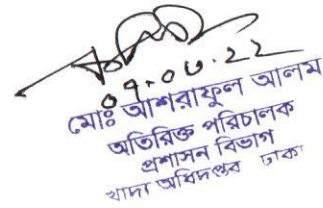 ০৭.০৬.২২
মোঃ আশরাফুল আলম
অতিরিক্ত পরিচালক
প্রশাসন বিভাগ
খাদ্য অধিদপ্তর ঢাকা